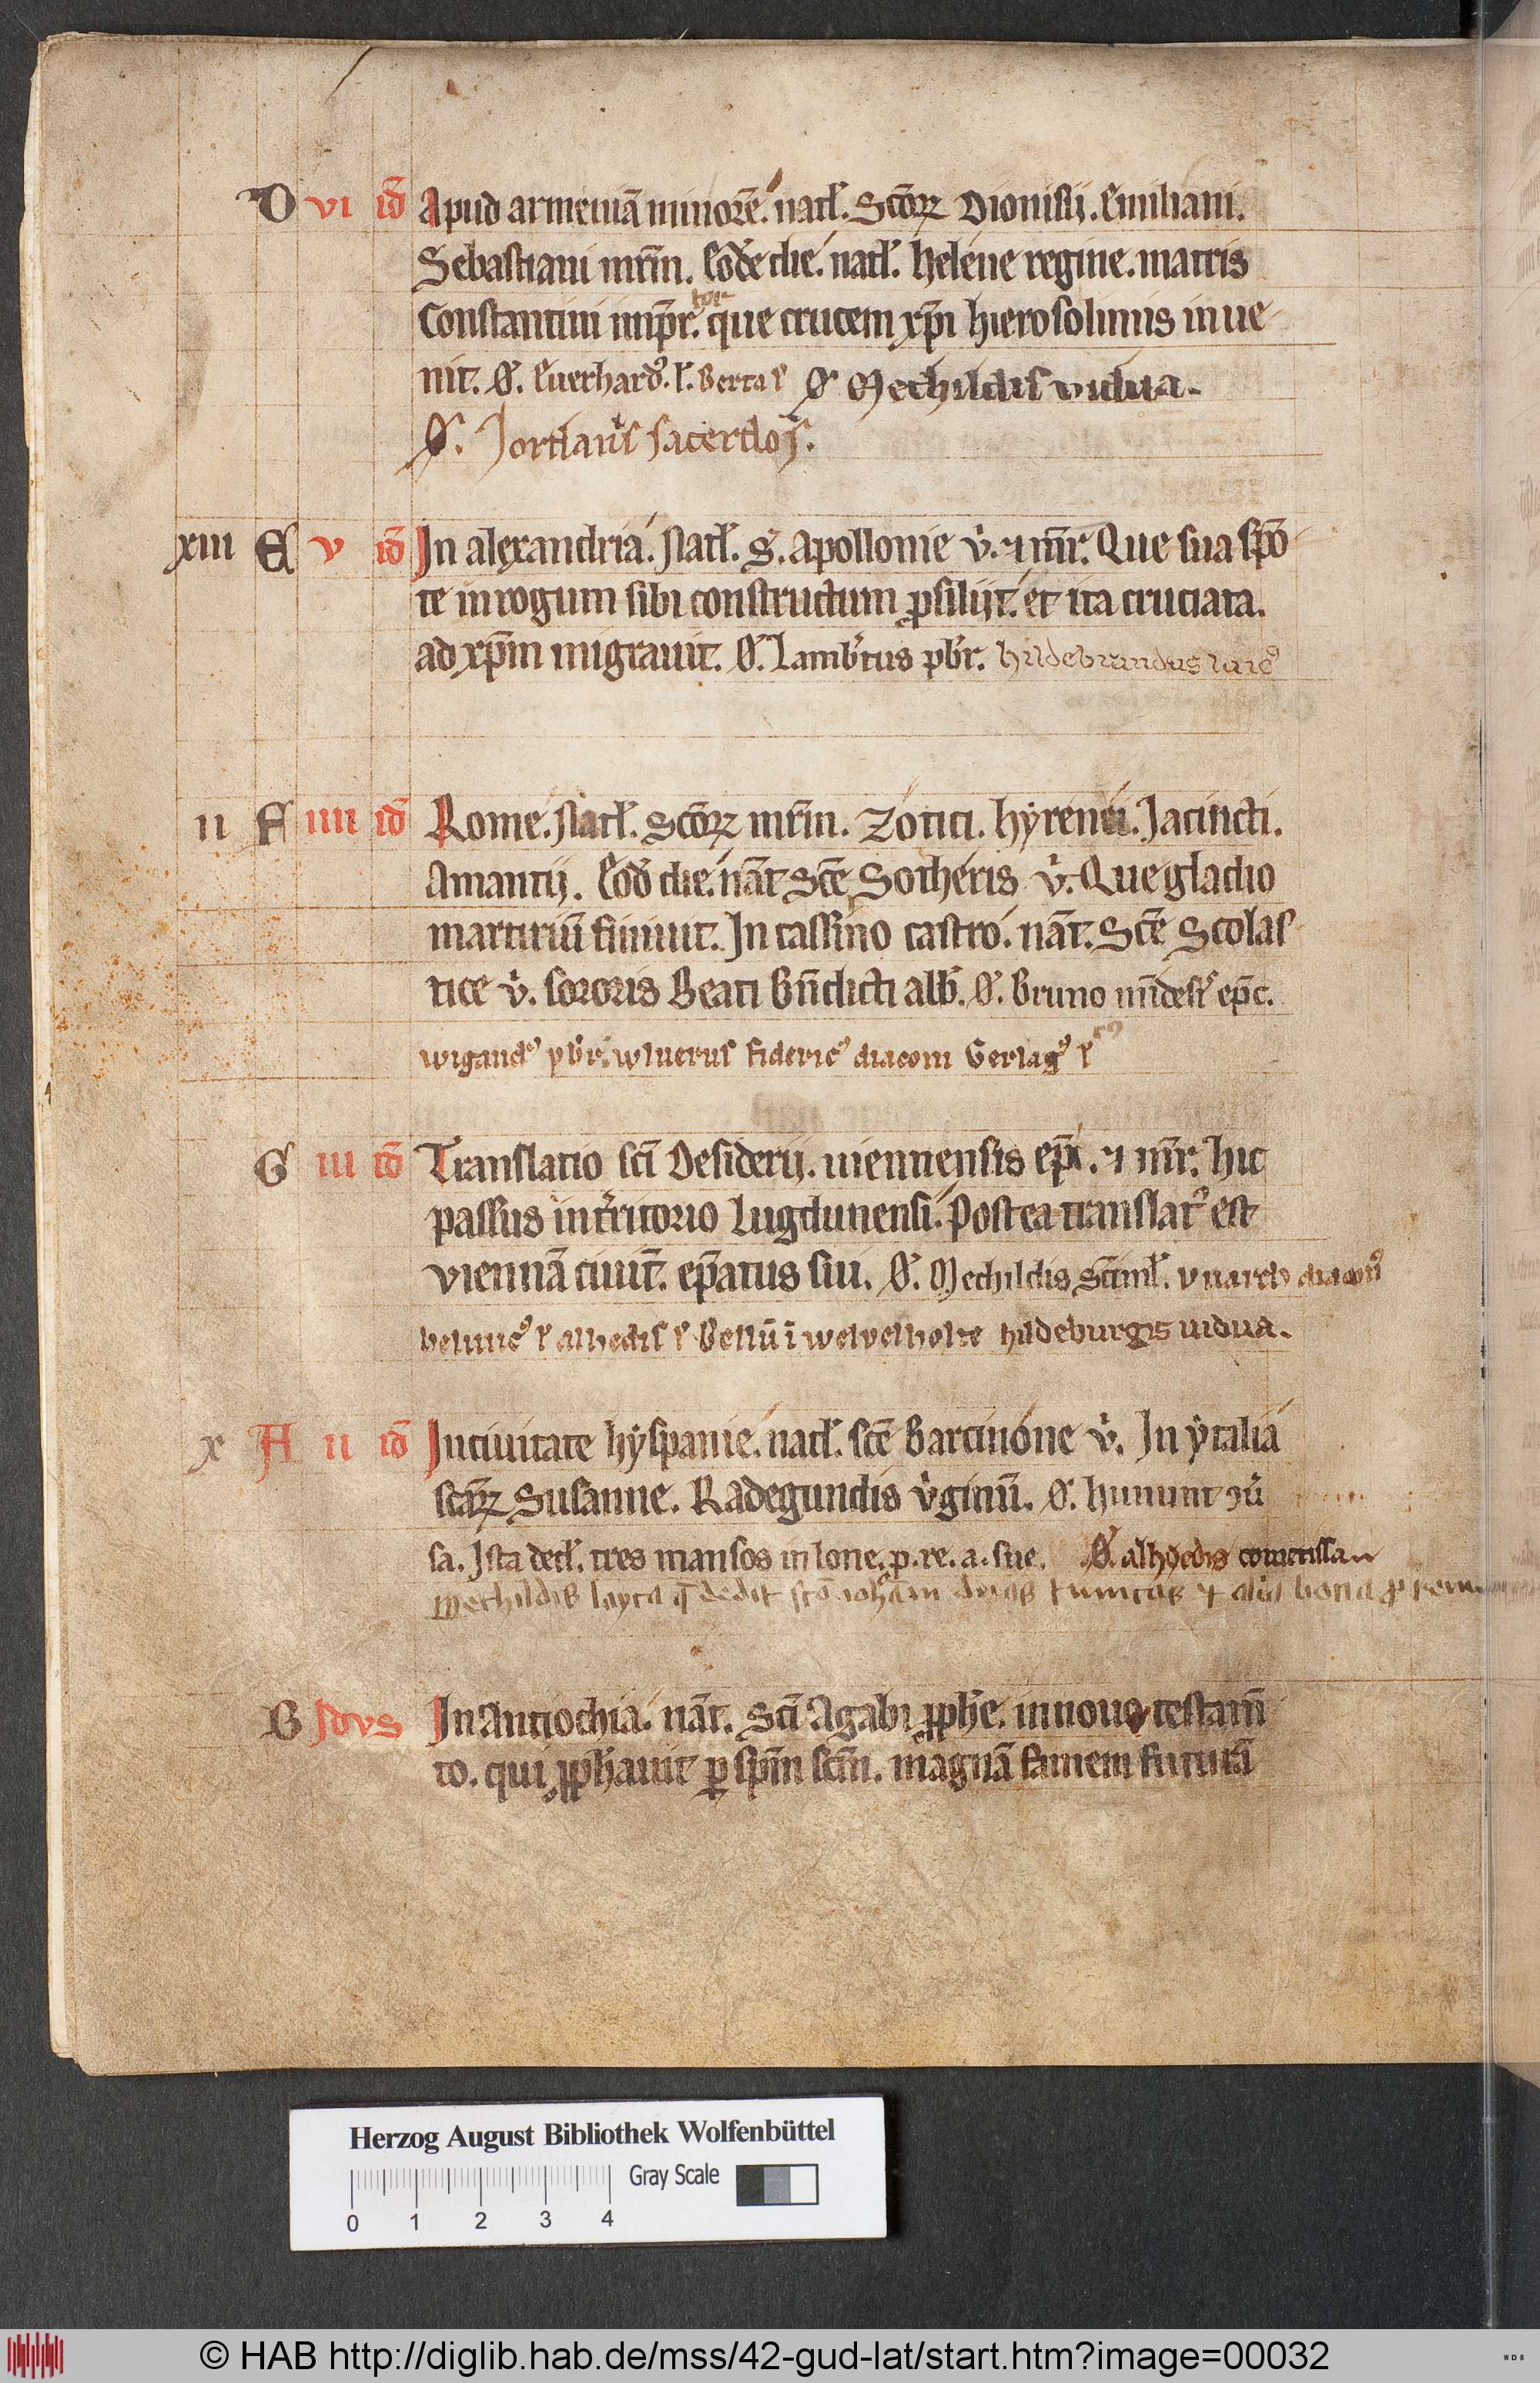 D vi id̄ Apud armeniā minorē. natl̓. Sc̄oꝝ Dionisij. Emiliani.
Sebastiani mr̄m. Eodē die. natl̓. helene regine. matris
Constantini imp̄r. que crucem xp̄i hierosolimis inue
nit. Ꝋ. Euerhardꝰ. l̓. Berta l̓ Ꝋ Mechildis uidua.
Ꝋ. Jordanꝰ sacerdos.
xiii E v id̄ In alexandria. Natl̓. S. Apollonie v̓. ⁊ mr̄. Que sua spō
te in rogum sibi constructum ꝓsilijt. et ita cruciata.
ad xp̄m migrauit. Ꝋ. Lamb̓tus pb̓r. hildebrandus laicꝰ
ii F iiii id̄ Rome. Natl̓. Sc̄oꝝ mr̄m. Zotici. hyrenei. Jacincti.
Amantij. Eod̓ die. nāt Sc̄e Sotheris v̓. Que gladio
martiriū finiuit. In cassino castro. nāt. Sc̄e Scolas
tice v̓. sororis Beati Bn̄dicti abb̓. Ꝋ. Bruno mīdēs̓ ep̄c.
wigandꝰ pb̓r. wluerus fidericꝰ diaconi Gerlagꝰ l̓
G iii id̄ Translatio sc̄i Desiderij. uiennensis ep̄i. ⁊ mr̄. hic
passus in t̓ritorio Lugdunensi. Postea translatꝰ est
viennā ciuit̄. ep̄atus sui. Ꝋ. Mechildis Sc̄iml̓. diaconꝰ
l̓ alhedis l̓ hildeburgis uidua.
x A ii id̄ In ciuitate hyspanie. natl̓. sc̄e Barcinone v̓. In ytalia
sc̄aꝝ Susanne. Radegundis v̓ginū. Ꝋ. hununt ꝯū̓
sa. Ista ded̓. tres mansos in lone. p. re. a. sue. Ꝋ. alheydis comitissa
Mechildis layca q̄ dedit sc̄o ioh̄am duas tunicas ⁊ alia bona ꝓ
B Idvs In Antiochia. nāt. Sc̄i Agabi ꝓph̄e. in nouo testam̄
to. qui ꝓph̄auit ꝑ sp̄m sc̄m. magnā famem futurā
Herzog August Bibliothek Wolfenbüttel
Gray Scale
0 1 2 3 4
© HAB http://diglib.hab.de/mss/42-gud-lat/start.htm?image=00032
WDB